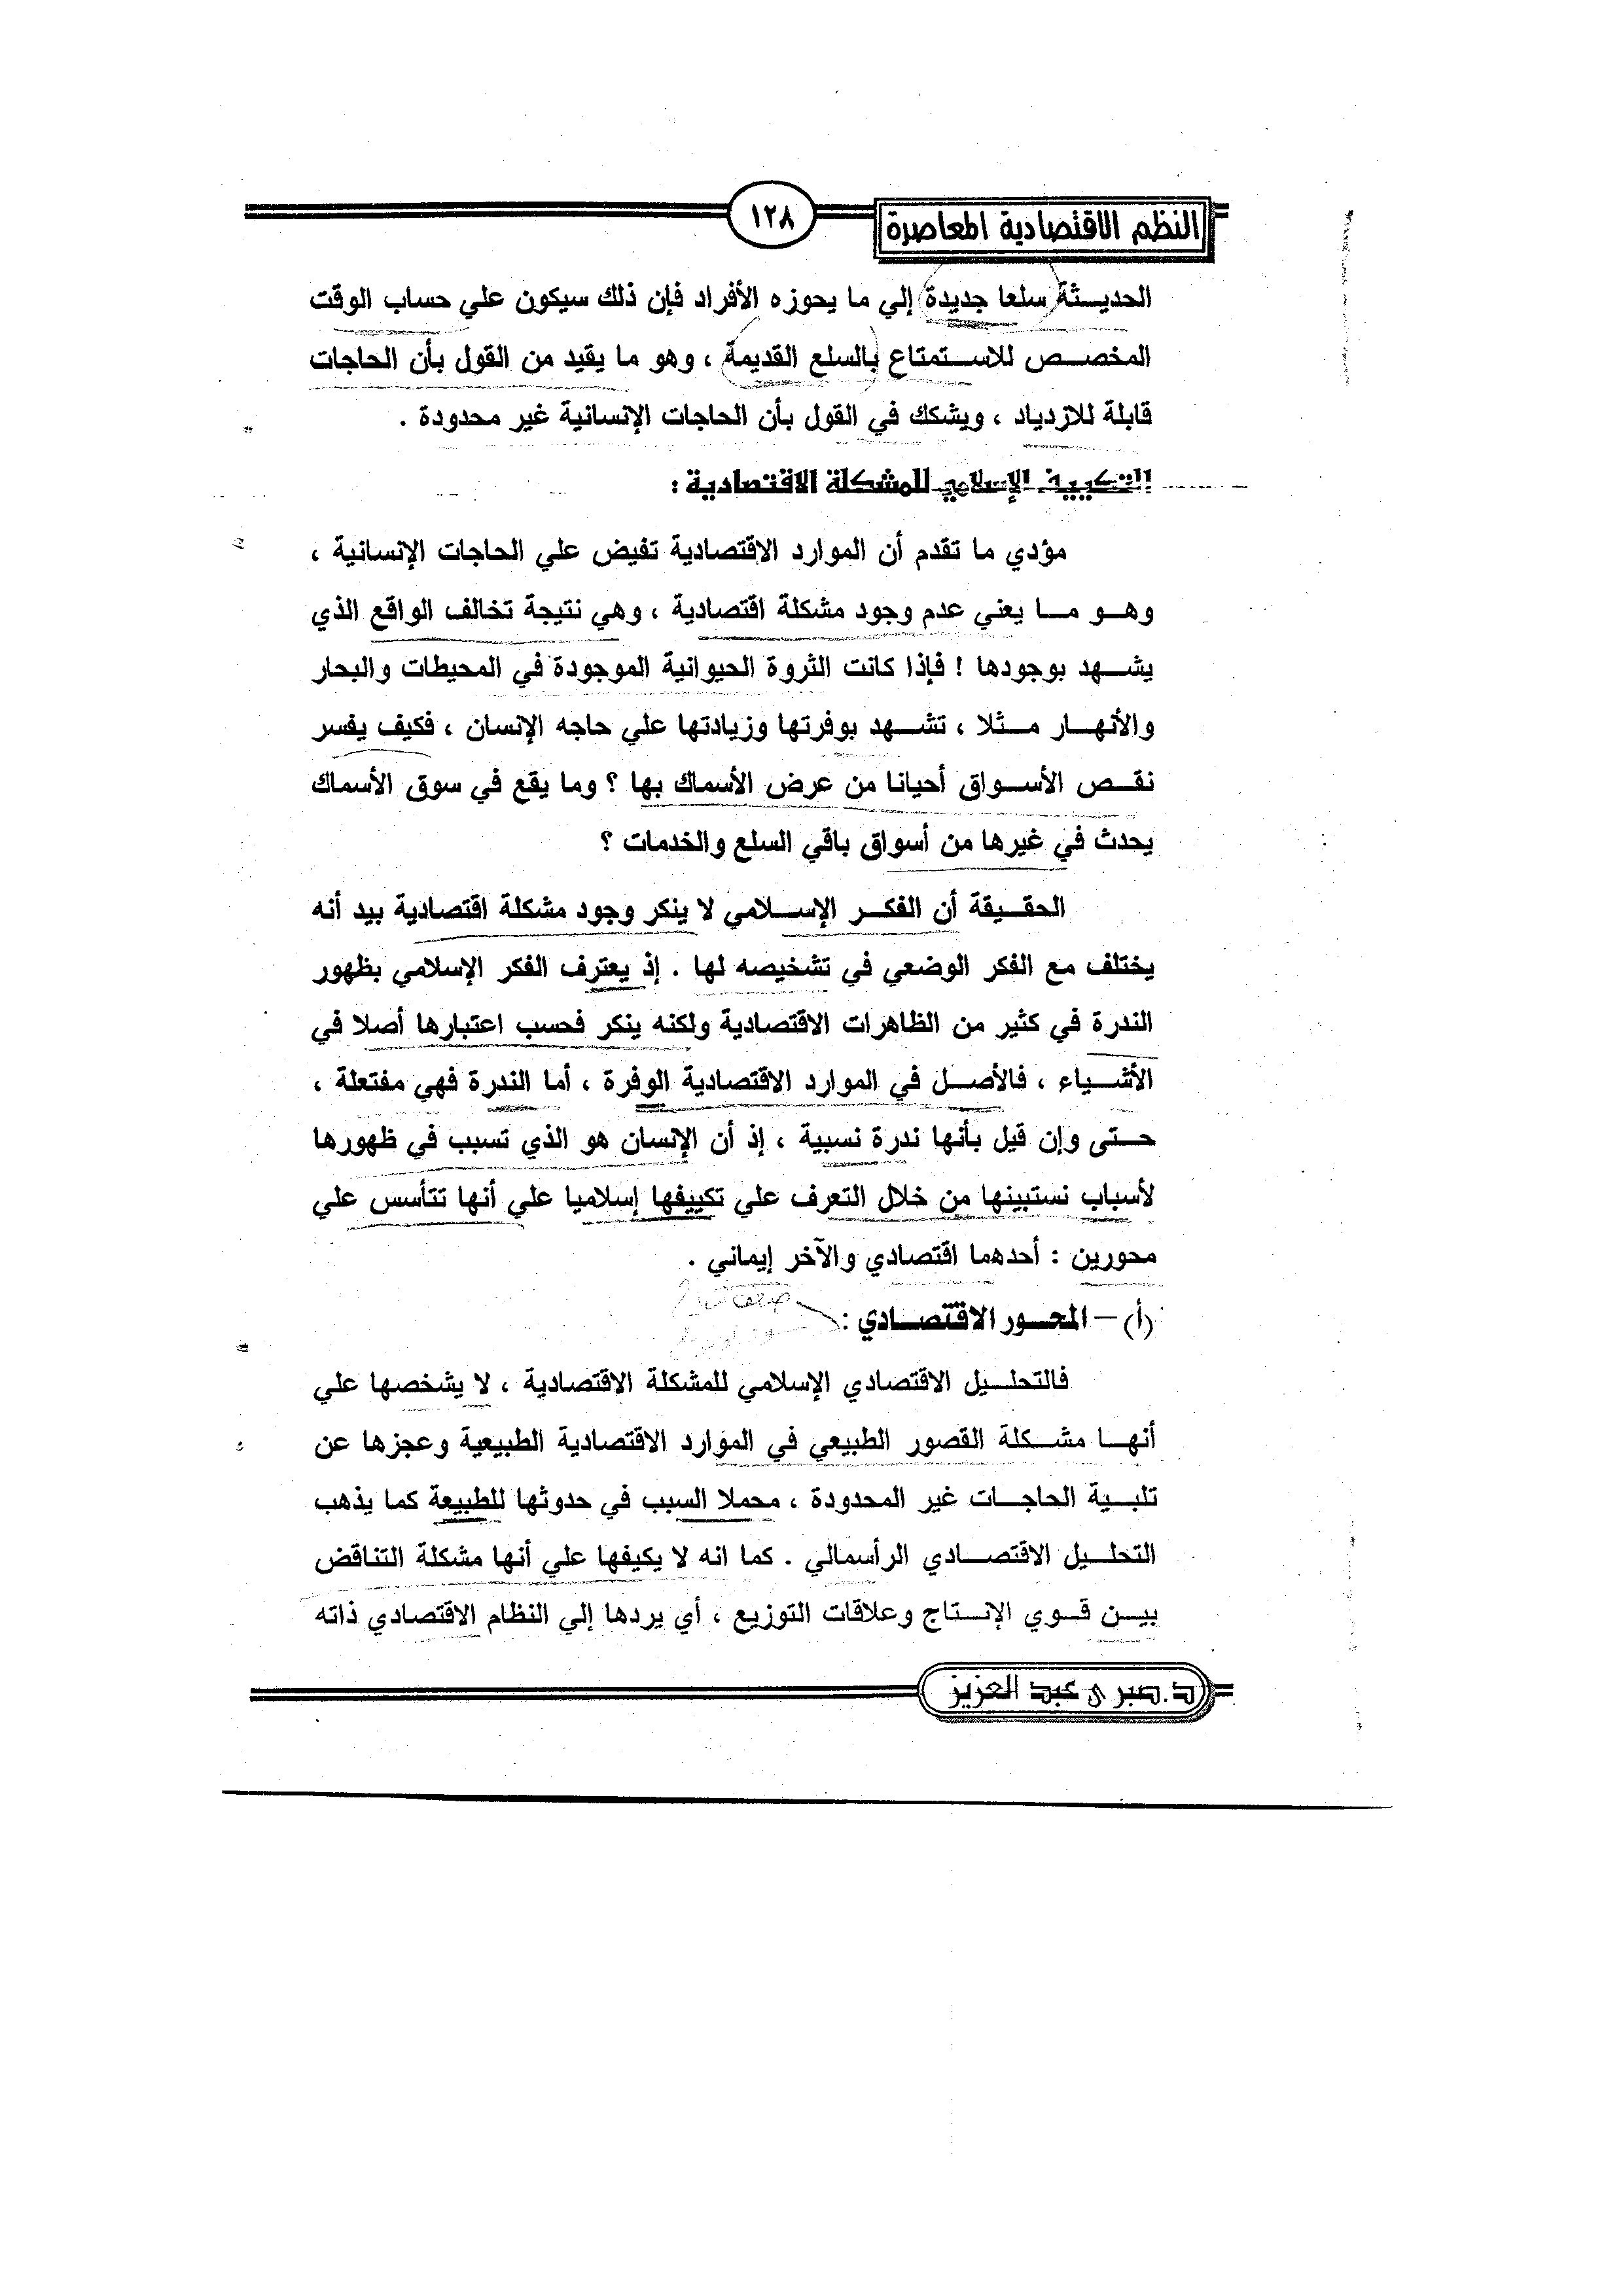 النظم الاقتصادية المعاصرة
١٢٨
الحديثة سلعا جديدة إلي ما يحوزه الأفراد فإن ذلك سيكون علي حساب الوقت
المخصص للاستمتاع بالسلع القديمة ، وهو ما يقيد من القول بأن الحاجات
قابلة للازدياد ، ويشكك في القول بأن الحاجات الإنسانية غير محدودة .
التكييف الإسلامي للمشكلة الاقتصادية :
مؤدي ما تقدم أن الموارد الاقتصادية تفيض علي الحاجات الإنسانية ،
وهو ما يعني عدم وجود مشكلة اقتصادية ، وهي نتيجة تخالف الواقع الذي
يشهد بوجودها ! فإذا كانت الثروة الحيوانية الموجودة في المحيطات والبحار
والأنهار مثلا ، تشهد بوفرتها وزيادتها علي حاجه الإنسان ، فكيف يفسر
نقص الأسواق أحيانا من عرض الأسماك بها ؟ وما يقع في سوق الأسماك
يحدث في غيرها من أسواق باقي السلع والخدمات ؟
الحقيقة أن الفكر الإسلامي لا ينكر وجود مشكلة اقتصادية بيد أنه
يختلف مع الفكر الوضعي في تشخيصه لها . إذ يعترف الفكر الإسلامي بظهور
الندرة في كثير من الظاهرات الاقتصادية ولكنه ينكر فحسب اعتبارها أصلا في
الأشياء ، فالأصل في الموارد الاقتصادية الوفرة ، أما الندرة فهي مفتعلة ،
حتى وإن قيل بأنها ندرة نسبية ، إذ أن الإنسان هو الذي تسبب في ظهورها
لأسباب نستبينها من خلال التعرف علي تكييفها إسلاميا علي أنها تتأسس علي
محورين : أحدهما اقتصادي والآخر إيماني .
(أ) – المحور الاقتصادي :
فالتحليل الاقتصادي الإسلامي للمشكلة الاقتصادية ، لا يشخصها علي
أنها مشكلة القصور الطبيعي في الموارد الاقتصادية الطبيعية وعجزها عن
تلبية الحاجات غير المحدودة ، محملا السبب في حدوثها للطبيعة كما يذهب
التحليل الاقتصادي الرأسمالي . كما انه لا يكيفها علي أنها مشكلة التناقض
بين قوي الإنتاج وعلاقات التوزيع ، أي يردها إلي النظام الاقتصادي ذاته
د. صبرى عبد العزيز